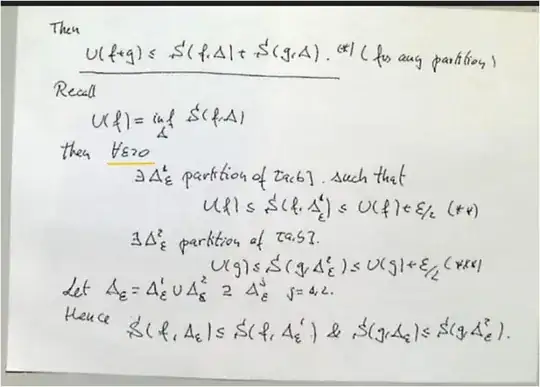 Then
U(f+g) ≤ S(f,Δ) + S(g,Δ). (*) (for any partition)
Recall
U(f) = inf_Δ S(f,Δ)
then ∀ε>0
∃ Δ¹_ε partition of [a,b]. such that
U(f) ≤ S(f,Δ¹_ε) ≤ U(f) + ε/2 (**)
∃ Δ²_ε partition of [a,b].
U(g) ≤ S(g,Δ²_ε) ≤ U(g) + ε/2 (***)
Let Δ_ε = Δ¹_ε ∪ Δ²_ε ⊇ Δʲ_ε j=1,2.
Hence S(f,Δ_ε) ≤ S(f,Δ¹_ε) & S(g,Δ_ε) ≤ S(g,Δ²_ε).